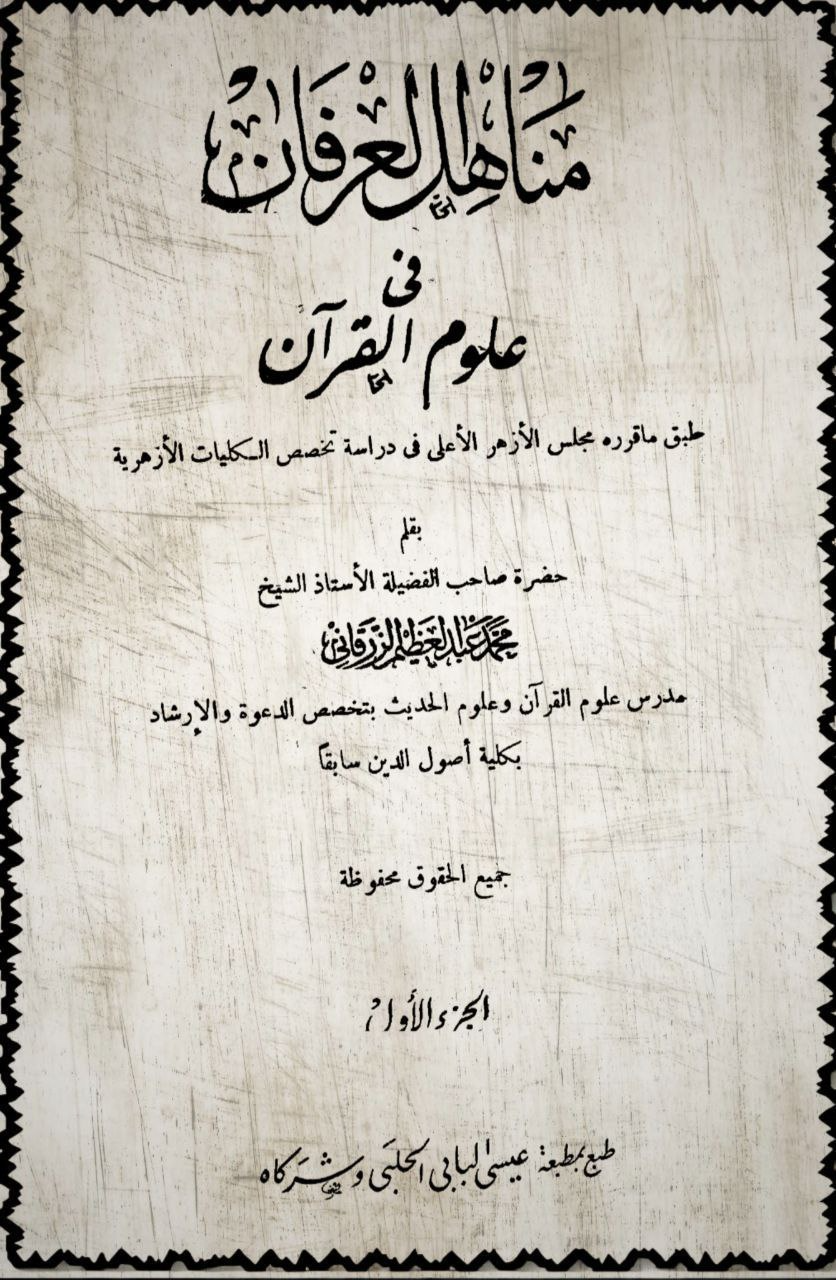 مناهل العرفان
فى
علوم القرآن
طبق ماقرره مجلس الأزهر الأعلى فى دراسة تخصص الكليات الأزهرية
بقلم
حضرة صاحب الفضيلة الأستاذ الشيخ
محمد عبد العظيم الزرقاني
مدرس علوم القرآن وعلوم الحديث بتخصص الدعوة والإرشاد
بكلية أصول الدين سابقاً
جميع الحقوق محفوظة
الجزء الأول
طبع بمطبعة عيسى البابى الحلبى وشركاه